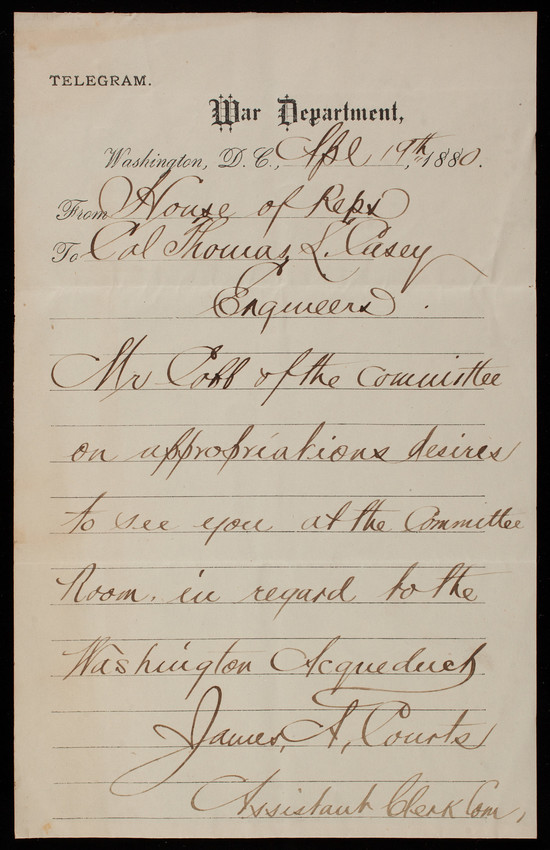 TELEGRAM.
War Department,
Washington, D. C., Apl 19th, 1880.
From House of Reps
To Col Thomas L. Casey
Engineers.
Mr Cobb of the Committee
on appropriations desires
to see you at the Committee
Room. in regard to the
Washington Acqueduct
James, A, Courts
Assistant Clerk Com,